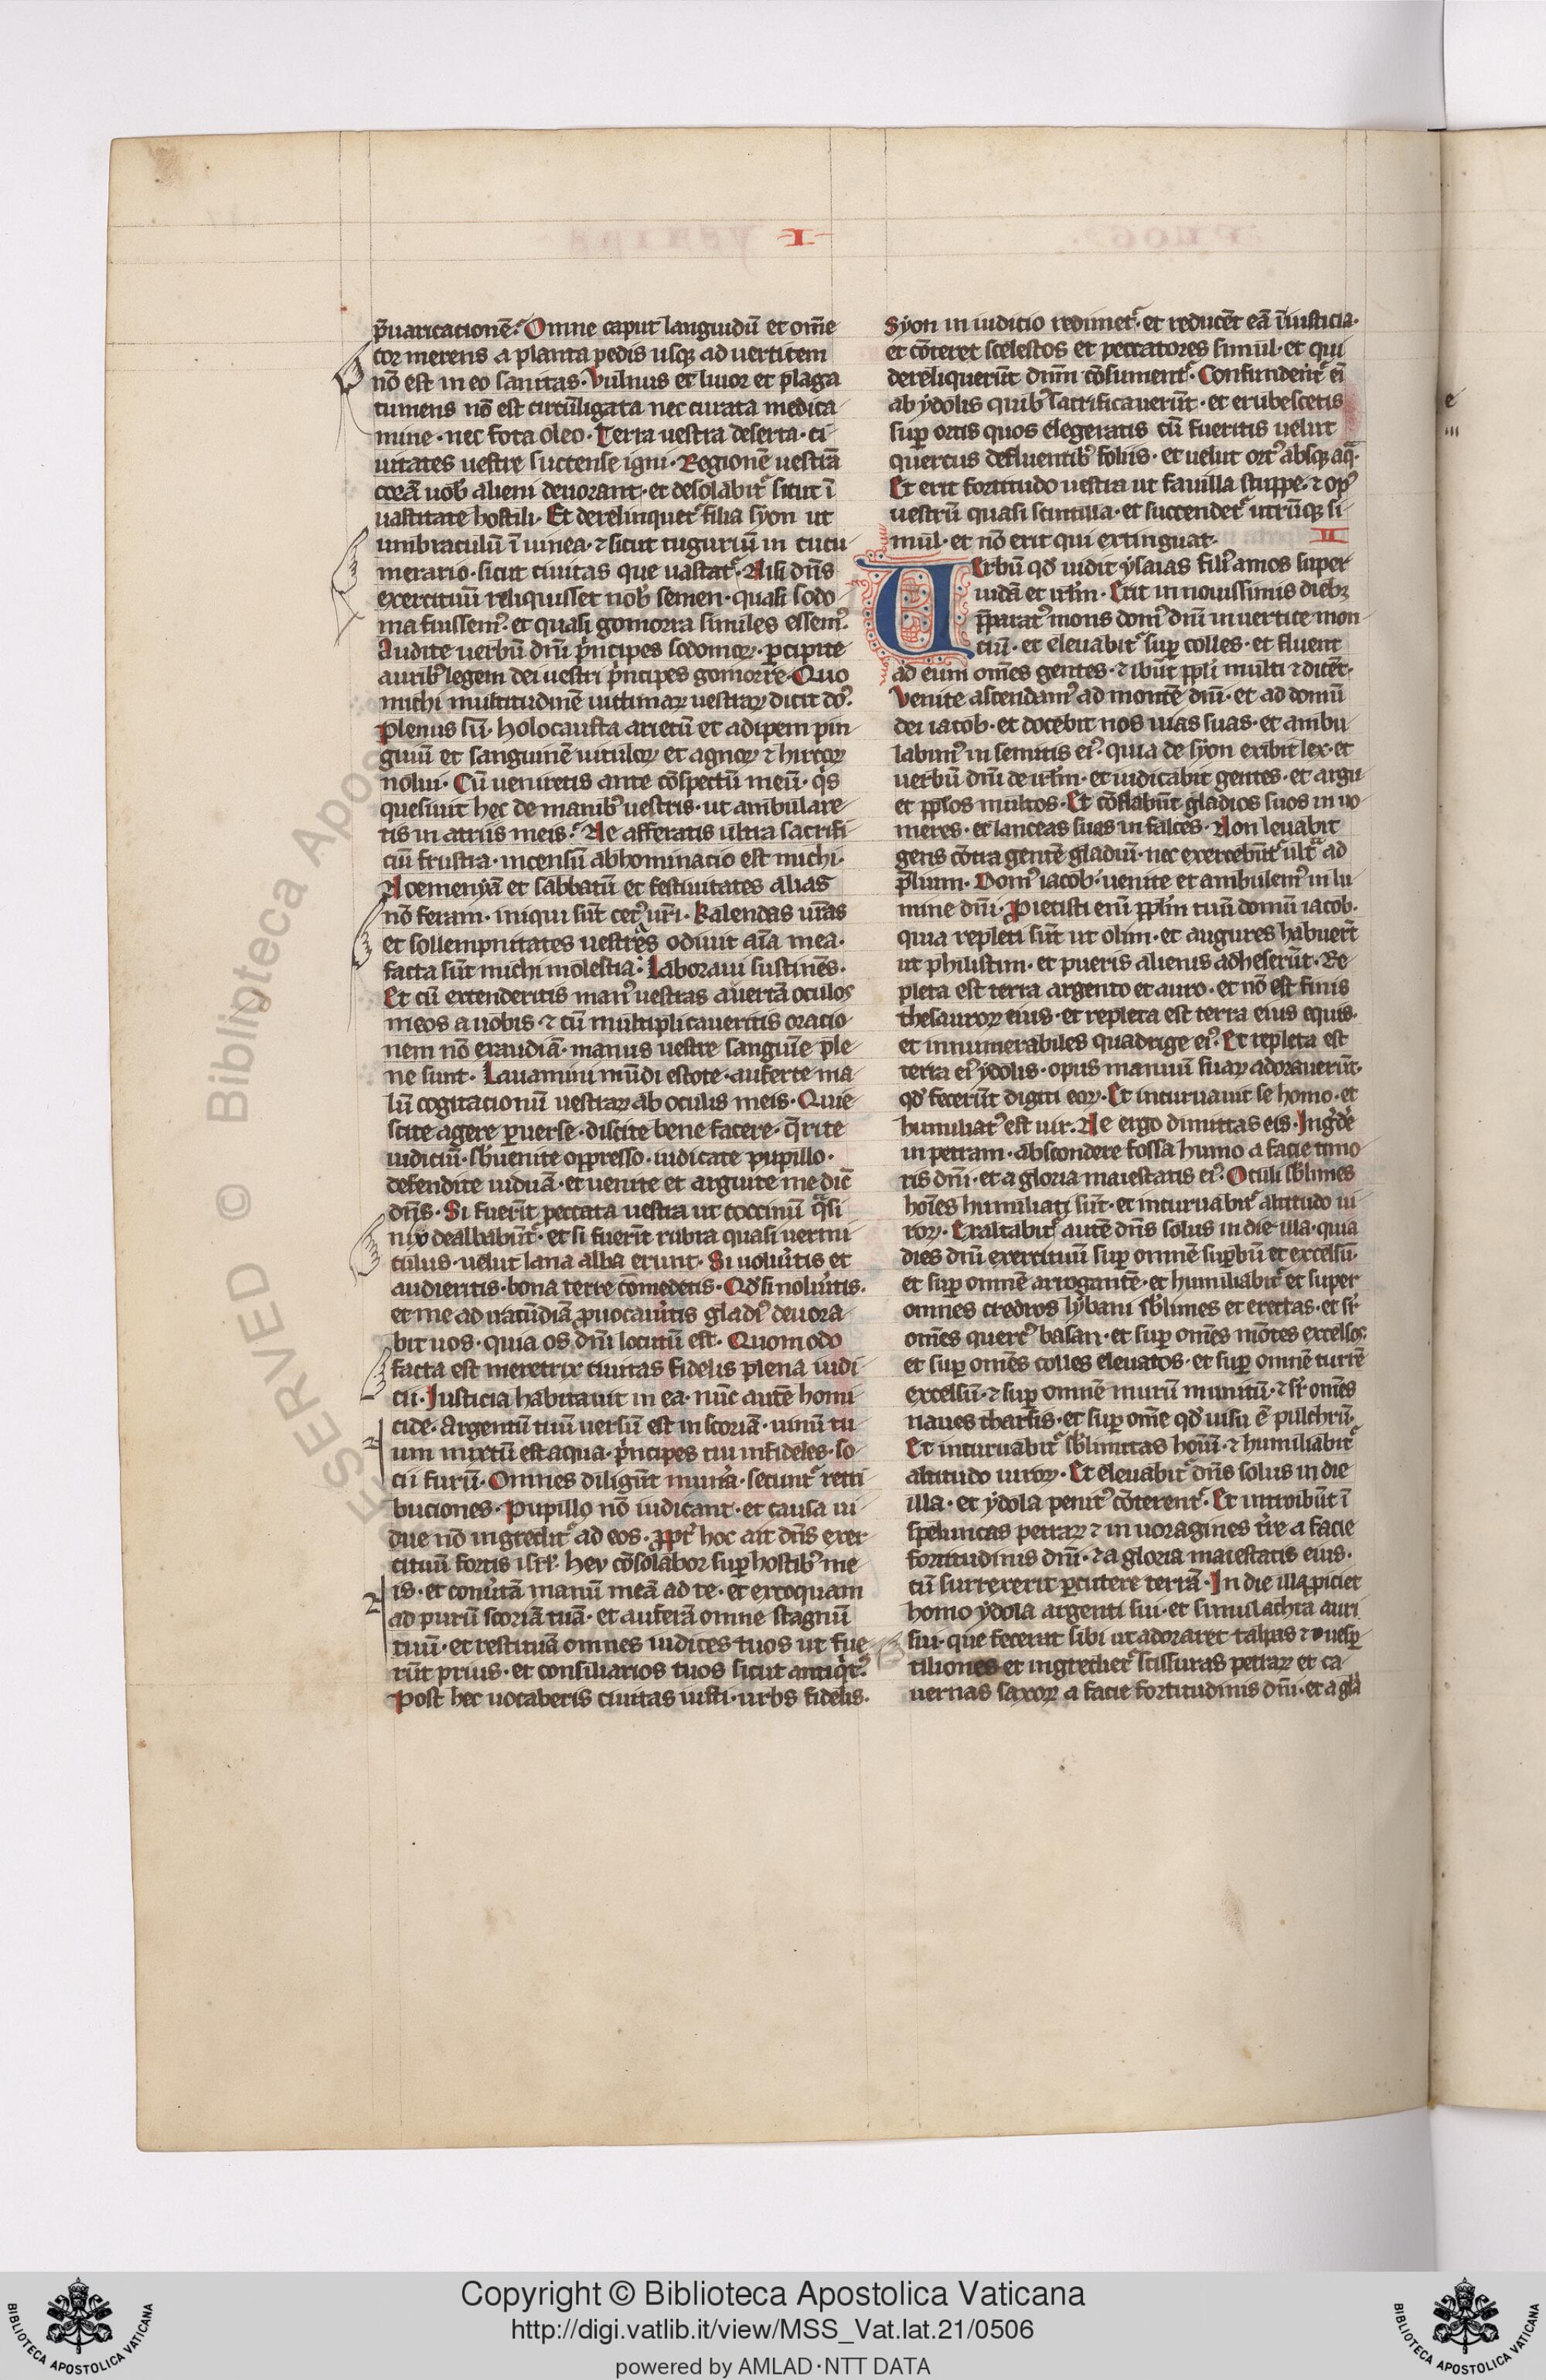 I
p̄uaricationē. Omne caput languidū et om̄e
cor merens a planta pedis usqꝫ ad uerticem
nō est in eo sanitas. Vulnus et liuor et plaga
tumens nō est circūligata nec curata medica
mine. nec fota oleo. Terra uestra deserta. ci
uitates uestre succense igni. Regionē uestrā
corā uob̄ alieni deuorant. et desolabit᷑ sicut ī
uastitate hostili. Et derelinquet᷑ filia syon ut
umbraculū ī uinea. ⁊ sicut tuguriū in cucu
merario. sicut ciuitas que uastat᷑. Nisi dn̄s
exercituū reliquisset nob̄ semen. quasi sodo
ma fuissemꝰ. et quasi gomorra similes essemꝰ.
Audite uerbū dn̄i p̄ncipes sodomoꝝ. ꝑcipite
auribꝰ legem dei uestri p̄ncipes gomorre. Quo
michi multitudinē uictimaꝝ uestraꝝ dicit dō.
Plenus sū. holocausta arietū et adipem pin
guiū et sanguinē uituloꝝ et agnoꝝ ⁊ hircoꝝ
nolui. Cū ueniretis ante cōspectū meū. qͥs
quesiuit hec de manibꝰ uestris. ut ambulare
tis in atriis meis. Ne afferatis ultra sacrifi
ciū frustra. incensū abhominacio est michi.
Neomeniā et sabbatū et festiuitates alias
nō feram. iniqui sūt cetꝰ ur̄i. Kalendas ur̄as
et sollempnitates uestras odiuit aīa mea.
facta sūt michi molesta. Laboraui sustinēs.
Et cū extenderitis manꝰ uestras auertā oculos
meos a uobis. ⁊ cū multiplicaueritis oracio
nem nō exaudiā. manus uestre sanguīe ple
ne sunt. Lauamini mūdi estote. auferte ma
lū cogitacionū uestraꝝ ab oculis meis. Quie
scite agere ꝑuerse. discite bene facere. q̄rite
iudiciū. sb̄uenite oppresso. iudicate pupillo.
defendite uiduā. et uenite et arguite me dic̄
dn̄s. Si fuerīt peccata uestra ut coccinū qͣsi
nix dealbabūt᷑. et si fuerīt rubra quasi uermi
culus. uelut lana alba erunt. Si uolu̾itis et
audieritis. bona terre comedetis. Qd̓ si nolu̾itis.
et me ad iracūdiā ꝓuocau̾itis gladiꝰ deuora
bit uos. quia os dn̄i locutū est. Quomodo
facta est meretrix ciuitas fidelis plena iudi
cii. Iusticia habitauit in ea. nūc autē homi
cide. Argentū tuū uersū est in scoriā. uinū tu
um mixtū est aqua. p̄ncipes tui infideles. so
cii furū. Omnes diligūt mun̾a. secunt᷑ retri
buciones. Pupillo nō iudicant. et causa ui
due nō ingredit᷑ ad eos. ꝓpt̾ hoc ait dn̄s exer
cituū fortis isrł. hev cōsolabor suꝑ hostibꝰ me
is. et conu̾tā manū meā ad te. et excoquam
ad purū scoriā tuā. et auferā omne stagnū
tuū. et restituā omnes iudices tuos ut fue
rūt prius. et consiliarios tuos sicut antiqͥt᷑.
Post hec uocaberis ciuitas iusti. urbs fidelis.
Syon in iudicio redimet᷑. et reducēt eā ī iusticia.
et cōteret scelestos et peccatores simul. et qui
dereliquerūt dnm̄ cōsument᷑. Confundent᷑ eī
ab ydolis quibꝰ sacrificauerūt. et erubescetis
suꝑ ortis quos elegeratis cū fueritis uelut
quercus defluentibꝰ foliis. et uelut ortꝰ absqꝫ aqͣ.
Et erit fortitudo uestra ut fauilla stuppe. ⁊ opꝰ
uestrū quasi scintilla. et succendet᷑ utrūqꝫ si
mul. et nō erit qui extinguat. II
Uerbū qd̓ uidit ysaias filiꝰ amos super
iudā et irłm. Erit in nouissimis diebꝫ
p̄paratꝰ mons domꝰ dn̄i in uertice mon
ciū. et eleuabit᷑ suꝑ colles. et fluent
ad eum om̄es gentes. ⁊ ibūt ppli multi ⁊ dicēt.
Venite ascendamꝰ ad montē dn̄i. et ad domū
dei iacob. et docebit nos uias suas. et ambu
labimꝰ in semitis eiꝰ. quia de syon exibit lex. et
uerbū dn̄i de irłm. et iudicabit gentes. et argu
et pplos multos. Et cōflabūt gladios suos in uo
meres. et lanceas suas in falces. Non leuabit
gens cōtra gentē gladiū. nec exercebūt᷑ ultͣ ad
p̄lium. Domꝰ iacob. uenite et ambulemꝰ in lu
mine dn̄i. Proiecisti enī pplm̄ tuū domū iacob.
quia repleti sūt ut olim. et augures habuer̄t
ut philistim. et pueris alienis adheserūt. Re
pleta est terra argento et auro. et nō est finis
thesauroꝝ eius. et repleta est terra eius equis.
et innumerabiles quadrige eiꝰ. Et repleta est
terra eiꝰ ydolis. opus manuū suaꝝ adorauerūt.
qd̓ fecerūt digiti eoꝝ. Et incuruauit se homo. et
humiliatꝰ est uir. Ne ergo dimittas eis. Ingͤdͤ
in petram. abscondere fossa humo a facie timo
ris dn̄i. et a gloria maiestatis eiꝰ. Oculi sb̄limes
hoīes humiliati sūt. et incuruabit᷑ altitudo ui
roꝝ. Exaltabit᷑ autē dn̄s solus in die illa. quia
dies dn̄i exercituū suꝑ omnē suꝑbū et excelsū.
et suꝑ omnē arrogantē. et humiliabit᷑ et super
omnes cedros lybani sb̄limes et erectas. et sr̄
om̄es quercꝰ basan. et suꝑ om̄es mōtes excelsos.
et suꝑ om̄es colles eleuatos. et suꝑ omnē turrē
excelsū. ⁊ suꝑ omnē murū munitū. ⁊ sr̄ om̄es
naues tharsis. et suꝑ om̄e qd̓ uisu ē pulchrū.
Et incuruabit᷑ sb̄limitas hoīū. ⁊ humiliabit᷑
altitudo uiroꝝ. Et eleuabit᷑ dn̄s solus in die
illa. et ydola penitꝰ cōterent᷑. Et introibūt ī
speluncas petraꝝ ⁊ in uoragines tr̄e a facie
fortitudinis dn̄i. ⁊ a gloria maiestatis eius.
cū surrexerit ꝑcutere terrā. In die illa ꝓiciet
homo ydola argenti sui. et simulachra auri
sui. que fecerat sibi ut adoraret talpas ⁊ uesꝑ
tiliones et ingrediet᷑ scissuras petraꝝ et ca
uernas saxoꝝ a facie fortitudinis dn̄i. et a głā
RESERVED © Biblioteca Apos
Copyright © Biblioteca Apostolica Vaticana
http://digi.vatlib.it/view/MSS_Vat.lat.21/0506
powered by AMLAD·NTT DATA
BIBLIOTECA APOSTOLICA VATICANA
BIBLIOTECA APOSTOLICA VATICANA